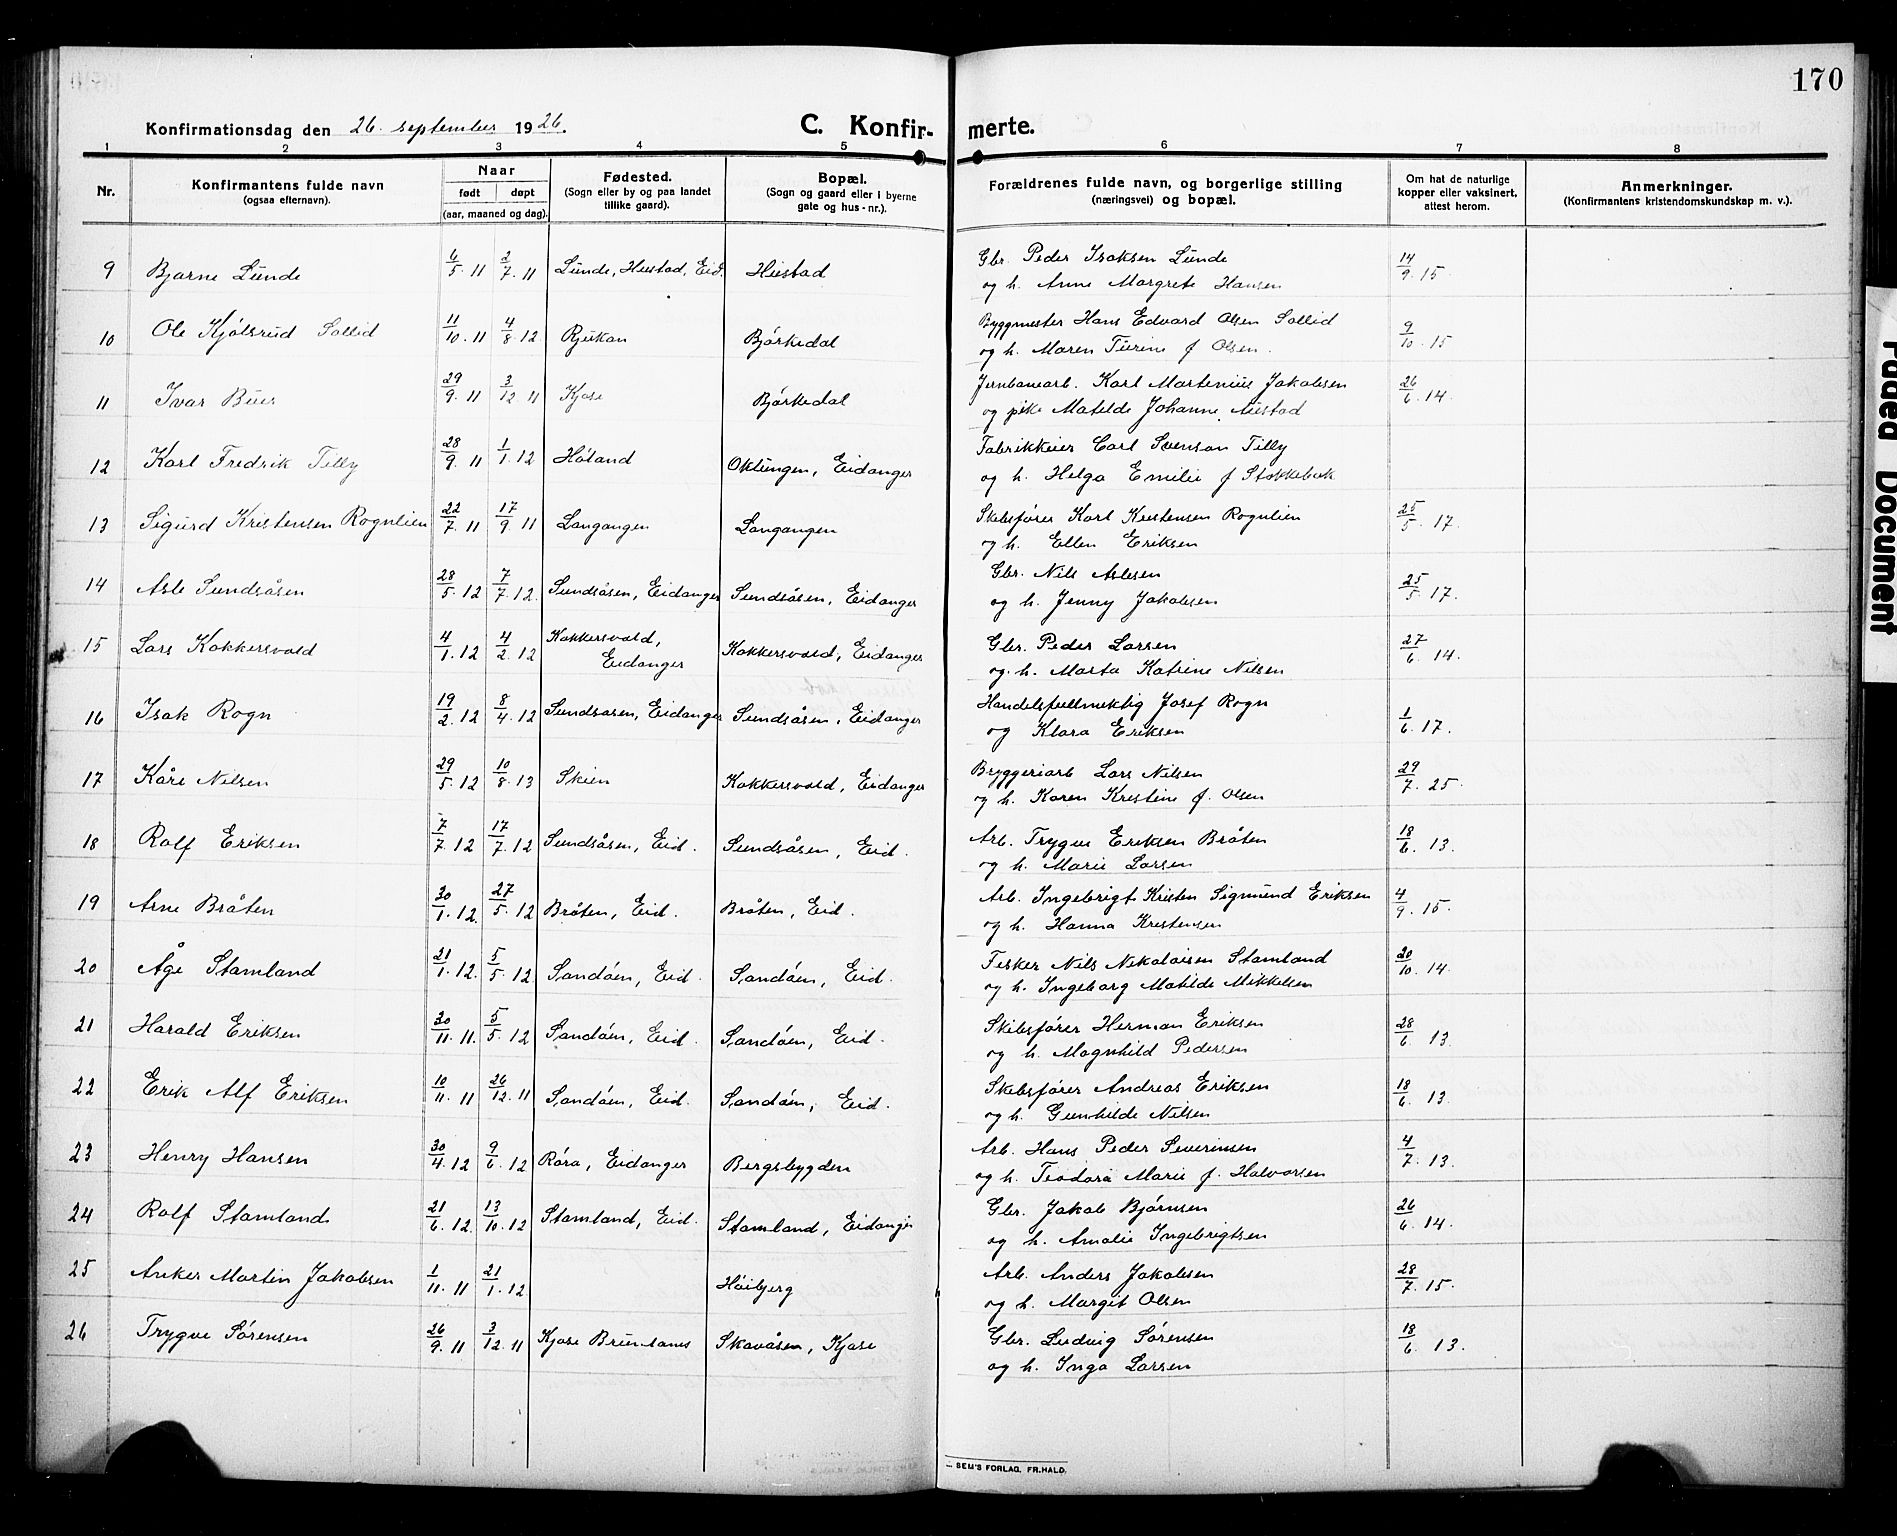 170
Konfirmationsdag den 26. september 1926. C. Konfir- merte.
1 2 3 4 5 6 7 8
Nr. Konfirmantens fulde navn (ogsaa efternavn). Naar født døpt (aar, maaned og dag). Fødested. (Sogn eller by og paa landet tillike gaard). Bopæl. (Sogn og gaard eller i byerne gate og hus-nr.). Forældrenes fulde navn, og borgerlige stilling (næringsvei) og bopæl. Om hat de naturlige kopper eller vaksinert, attest herom. Anmerkninger. (Konfirmantens kristendomskundskap m. v.).
9 Bjarne Lunde 6/5. 11 2/7. 11 Lunde, Heistad, Eid. Heistad Gbr. Peder Isaksen Lunde 14/9. 15.
og h. Anne Margrete Hansen
10 Ole Kjölsrud Sollid 11/10. 11 4/8. 12 Rjukan Björkedal Byggmester Hans Edvard Olsen Sollid 9/10. 15
og h. Maren Turine f Olsen.
11 Ivar Buer 29/9. 11 3/12. 11 Kjose Björkedal Jernbanearb. Karl Martenius Jakobsen 26/6. 14.
og pike Matilde Johanne Austad
12 Karl Fredrik Tilly 28/9. 11 1/1. 12 Höland Oklungen, Eidanger Fabrikkeier Carl Svenson Tilly
og h. Helga Emilie f Stokkebæk
13 Sigurd Kristensen Rognlien 22/7. 11 17/9. 11 Langangen Langangen Skibsförer Karl Kristensen Rognlien 25/5. 17.
og h. Ellen Eriksen
14 Asle Sundsåsen 28/5. 12 7/7. 12. Sundsåsen, Eidanger Sundsåsen, Eidanger Gbr. Nils Aslesen 25/5. 17.
og h. Jenny Jakobsen
15 Lars Kokkersvold 4/1. 12 4/2. 12 Kokkersvold, Eidanger Kokkersvold, Eidanger Gbr. Peder Larsen 27/6. 14.
og. h. Marta Katrine Nilsen
16 Isak Rogn 19/2. 12 8/4. 12 Sundsasen, Eidanger Sundsåsen, Eidanger Handelsfullmektig Josef Rogn 1/6. 17.
og Klara Eriksen
17 Kåre Nilsen 29/5. 12 10/8. 13 Skien Kokkersvold, Eidanger Bryggeriarb Lars Nilsen 29/7. 25.
og h. Karen Kristine f. Olsen
18 Rolf Eriksen 7/7. 12 17/7. 12 Sundsåsen, Eid. Sundsåsen, Eid. Arb. Trygve Eriksen Bråten 18/6. 13.
og h. Marie Larsen
19 Arne Bråten 30/1. 12. 27/5. 12 Bråten, Eid. Bråten, Eid. Arb. Ingebrigt Kristen Sigmund Eriksen 4/9. 15.
og h. Hanna Kristensen
20 Åge Stamland 21/1. 12. 5/5. 12 Sandöen, Eid. Sandöen, Eid. Fisker Nils Nikolaisen Stamland 20/10. 14.
og h. Ingeborg Matilde Mikkelsen
21 Harald Eriksen 30/11. 11. 5/5. 12 Sandöen, Eid. Sandöen, Eid. Skibsförer Herman Eriksen 28/6. 13.
og h. Magnhild Pedersen
22 Erik Alf Eriksen 10/11. 11 26/12. 11 Sandöen, Eid. Sandöen, Eid. Skibsförer Andreas Eriksen 18/6. 13.
og h. Gunhilde Nilsen
23 Henry Hansen 30/4. 12 9/6. 12 Röra, Eidanger Bergsbygden Arb. Hans Peder Severinsen 4/7. 13.
og h. Teodora Marie f. Halvorsen
24 Rolf Stamland 21/6. 12. 13/10. 12 Stamland, Eid. Stamland, Eidanger Gbr. Jakob Björnsen 26/6. 14.
og h. Amalie Ingebrigtsen
25 Anker Martin Jakobsen 1/11. 11 21/1. 12 Höibjerg Arb. Anders Jakobsen 28/7. 15.
og h. Margit Olsen
26 Trygve Sörensen 26/9. 11 3/12. 11 Kjose Brunlanes Skavåsen, Kjose Gbr. Ludvig Sörensen 18/6. 13.
og h. Inga Larsen
SEM'S FORLAG, FR.HALD.
Document